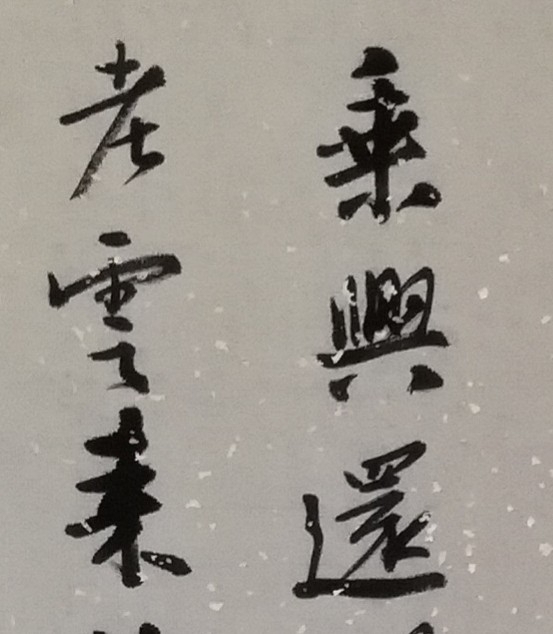 乘興還
老雲来